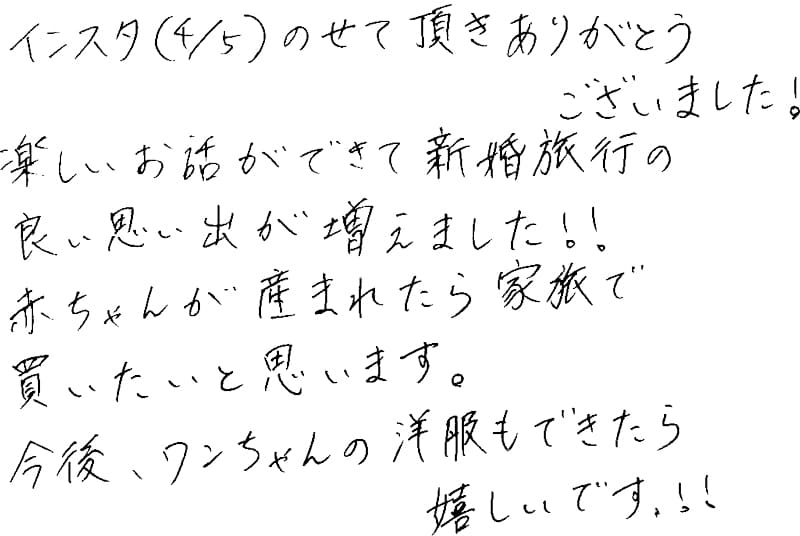 インスタ(4/5)のせて頂きありがとう
ございました!
楽しいお話ができて新婚旅行の
良い思い出が増えました!!
赤ちゃんが産まれたら家旅で
買いたいと思います。
今後、ワンちゃんの洋服もできたら
嬉しいです.!!